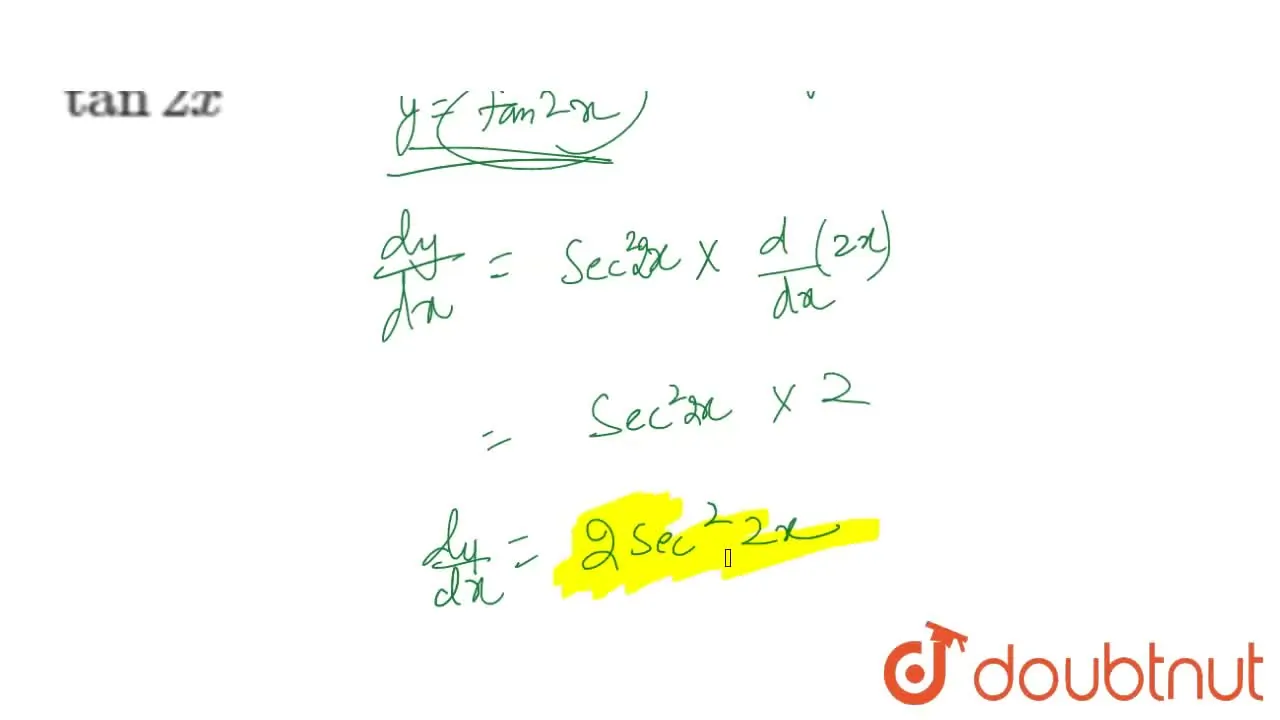 tan 2x
y = (tan 2x)
dy/dx = Sec² 2x × d/dx (2x)
= Sec² 2x × 2
dy/dx = 2 Sec² 2x
doubtnut